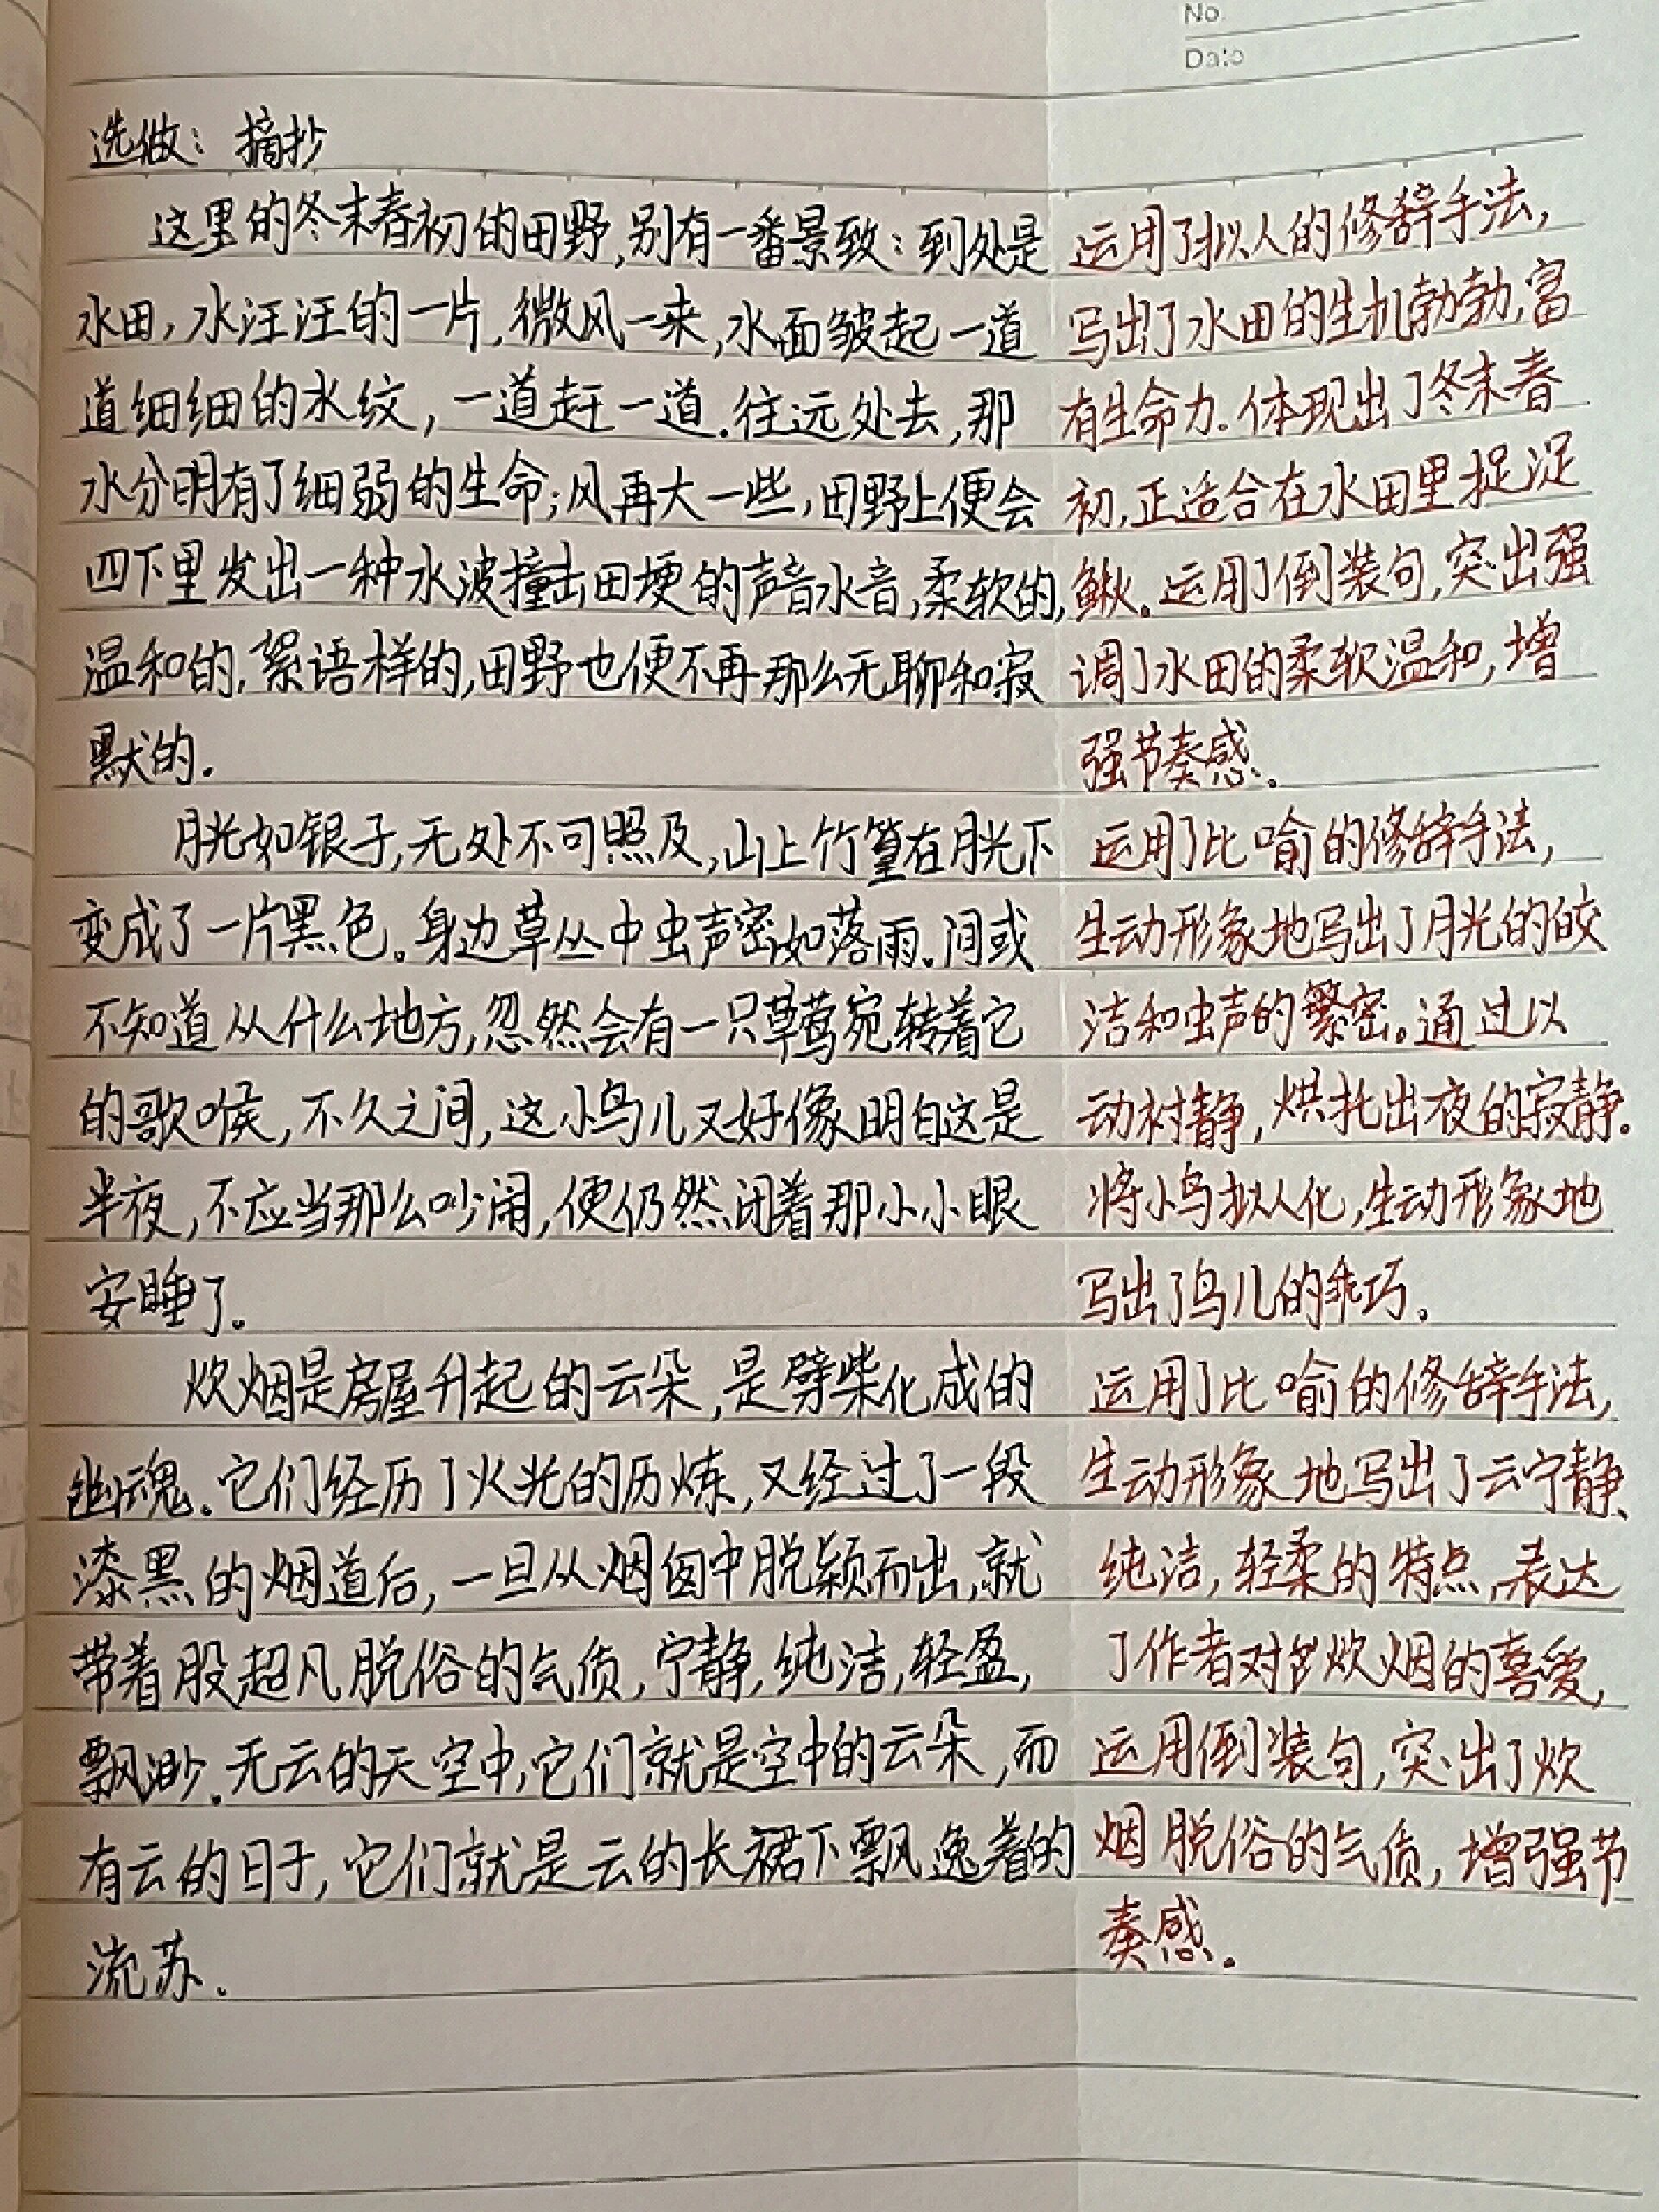 No.
Date
选做：摘抄
这里的冬末春初的田野,别有一番景致：到处是
水田,水汪汪的一片.微风一来,水面皱起一道
道细细的水纹,一道赶一道.往远处去,那
水分明有了细弱的生命;风再大一些,田野上便会
四下里发出一种水波撞击田埂的声音水音,柔软的,
温和的,絮语样的,田野也便不再那么无聊和寂
默的.
月光如银子,无处不可照及,山上竹篁在月光下
变成了一片黑色。身边草丛中虫声密如落雨.间或
不知道从什么地方,忽然会有一只草莺宛转着它
的歌喉,不久之间,这小鸟儿又好像明白这是
半夜,不应当那么吵闹,便仍然闭着那小小眼
安睡了.
炊烟是房屋升起的云朵,是劈柴化成的
幽魂.它们经历了火光的历炼,又经过了一段
漆黑的烟道后,一旦从烟囱中脱颖而出,就
带着股超凡脱俗的气质,宁静,纯洁,轻盈,
飘渺.无云的天空中,它们就是空中的云朵,而
有云的日子,它们就是云的长裙下飘逸着的
流苏.
运用了拟人的修辞手法,
写出了水田的生机勃勃,富
有生命力.体现出了冬末春
初,正适合在水田里捉泥
鳅。运用了倒装句,突出强
调了水田的柔软温和,增
强节奏感.
运用了比喻的修辞手法,
生动形象地写出了月光的皎
洁和虫声的繁密。通过以
动衬静,烘托出夜的寂静.
将小鸟拟人化,生动形象地
写出了鸟儿的乖巧.
运用了比喻的修辞手法,
生动形象地写出了云宁静、
纯洁,轻柔的特点,表达
了作者对炊烟的喜爱,
运用倒装句,突出了炊
烟脱俗的气质,增强节
奏感.